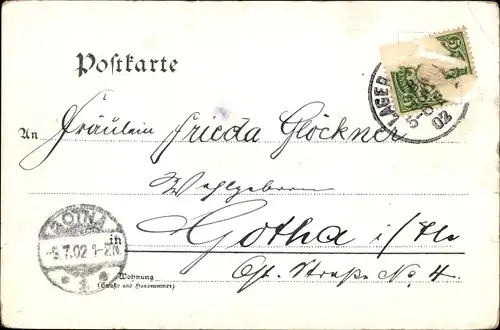 Postkarte
LAGER
5-6
02
An Fräulein Frieda Glöckner
Wohlgeboren
GOTHA
-5.7.02 1-2N
1
in Gotha i/Th
Ost. Straße No. 4.
Wohnung
(Straße und Hausnummer)